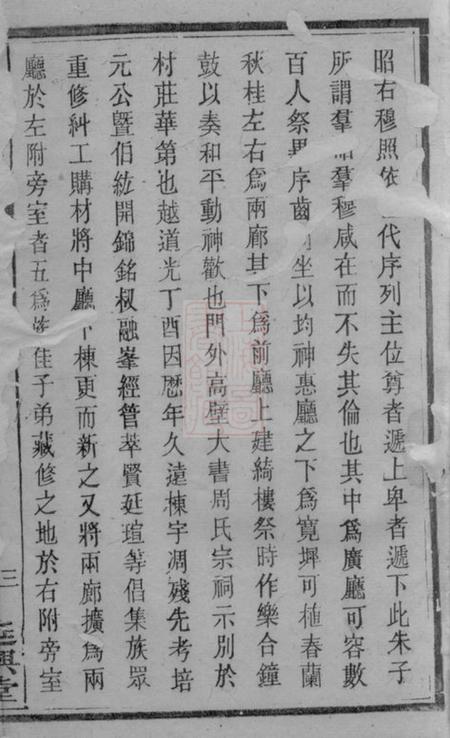 昭右穆照依代序列主位尊者遞上卑者遞下此朱子
所謂羣昭羣穆咸在而不失其倫也其中爲廣廳可容數
百人祭畢序齒坐以均神惠廳之下爲寬墀可植春蘭
秋桂左右爲兩廊其下爲前廳上建綺樓祭時作樂合鐘
鼓以奏和平動神歡也門外高壁大書周氏宗祠示別於
村莊華第也越道光丁酉因曆年久遠棟宇凋殘先考培
元公暨伯紘開錦銘椒融峯經管萃賢延瑄等倡集族眾
重修糾工購材將中廳下棟更而新之又將兩廊擴爲兩
廳於左附旁室者五爲佳子弟藏修之地於右附旁室
三
興堂